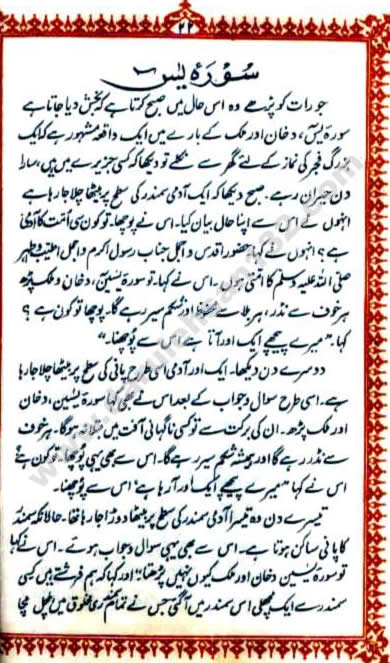 ۲۲
سُوْرَۂ یٰسٓ
جو رات کو پڑھے وہ اس حال میں صبح کرتا ہے کہ بخش دیا جاتا ہے
سورۂ یٰسٓ، دخان اور ملک کے بارے میں ایک واقعہ مشہور ہے کہ ایک
بزرگ فجر کی نماز کے لئے گھر سے نکلے تو دیکھا کہ کسی جزیرے میں ہیں، سارا
دن حیران رہے۔ صبح دیکھا کہ ایک آدمی سمندر کی سطح پر بیٹھا چلا جا رہا ہے
انہوں نے اس سے اپنا حال بیان کیا۔ اس نے پوچھا۔ تو کون سی امّت کا آدمی
ہے؟ انہوں نے کہا حضور اقدس و اجمل جناب رسول اکرم و اجمل اطیب و اطہر
صلی اللہ علیہ وسلم کا امتی ہوں۔ اس نے کہا۔ تو سورۂ یٰسین، دخان و ملک پڑھ
ہر خوف سے نڈر، ہر بلا سے محفوظ اور شکم سیر رہے گا۔ پوچھا تو کون ہے؟
کہا۔ "میرے پیچھے ایک اور آتا ہے اس سے پوچھنا۔"
دوسرے دن دیکھا۔ ایک اور آدمی اسی طرح پانی کی سطح پر بیٹھا چلا جا رہا
ہے۔ اسی طرح سوال و جواب کے بعد اس نے بھی کہا سورۂ یٰسین، دخان
اور ملک پڑھ۔ ان کی برکت سے تو کسی ناگہانی آفت میں مبتلا نہ ہوگا۔ ہر خوف
سے نڈر رہے گا اور ہمیشہ شکم سیر رہے گا۔ اس سے بھی یہی پوچھا۔ تو کون ہے؟
اس نے کہا "میرے پیچھے ایک اور آ رہا ہے" اس سے پوچھنا۔
تیسرے دن وہ تیسرا آدمی سمندر کی سطح پر بیٹھا دوڑا جا رہا تھا۔ حالانکہ سمندر
کا پانی ساکن ہوتا ہے۔ اس سے بھی یہی سوال و جواب ہوئے۔ اس نے کہا
تو سورۂ یٰسین دخان اور ملک کیوں نہیں پڑھتا؟ اور کہا کہ ہم فرشتے ہیں کسی
سمندر سے ایک مچھلی اس سمندر میں آ گئی جس نے تمام بحری مخلوق میں ہلچل مچا